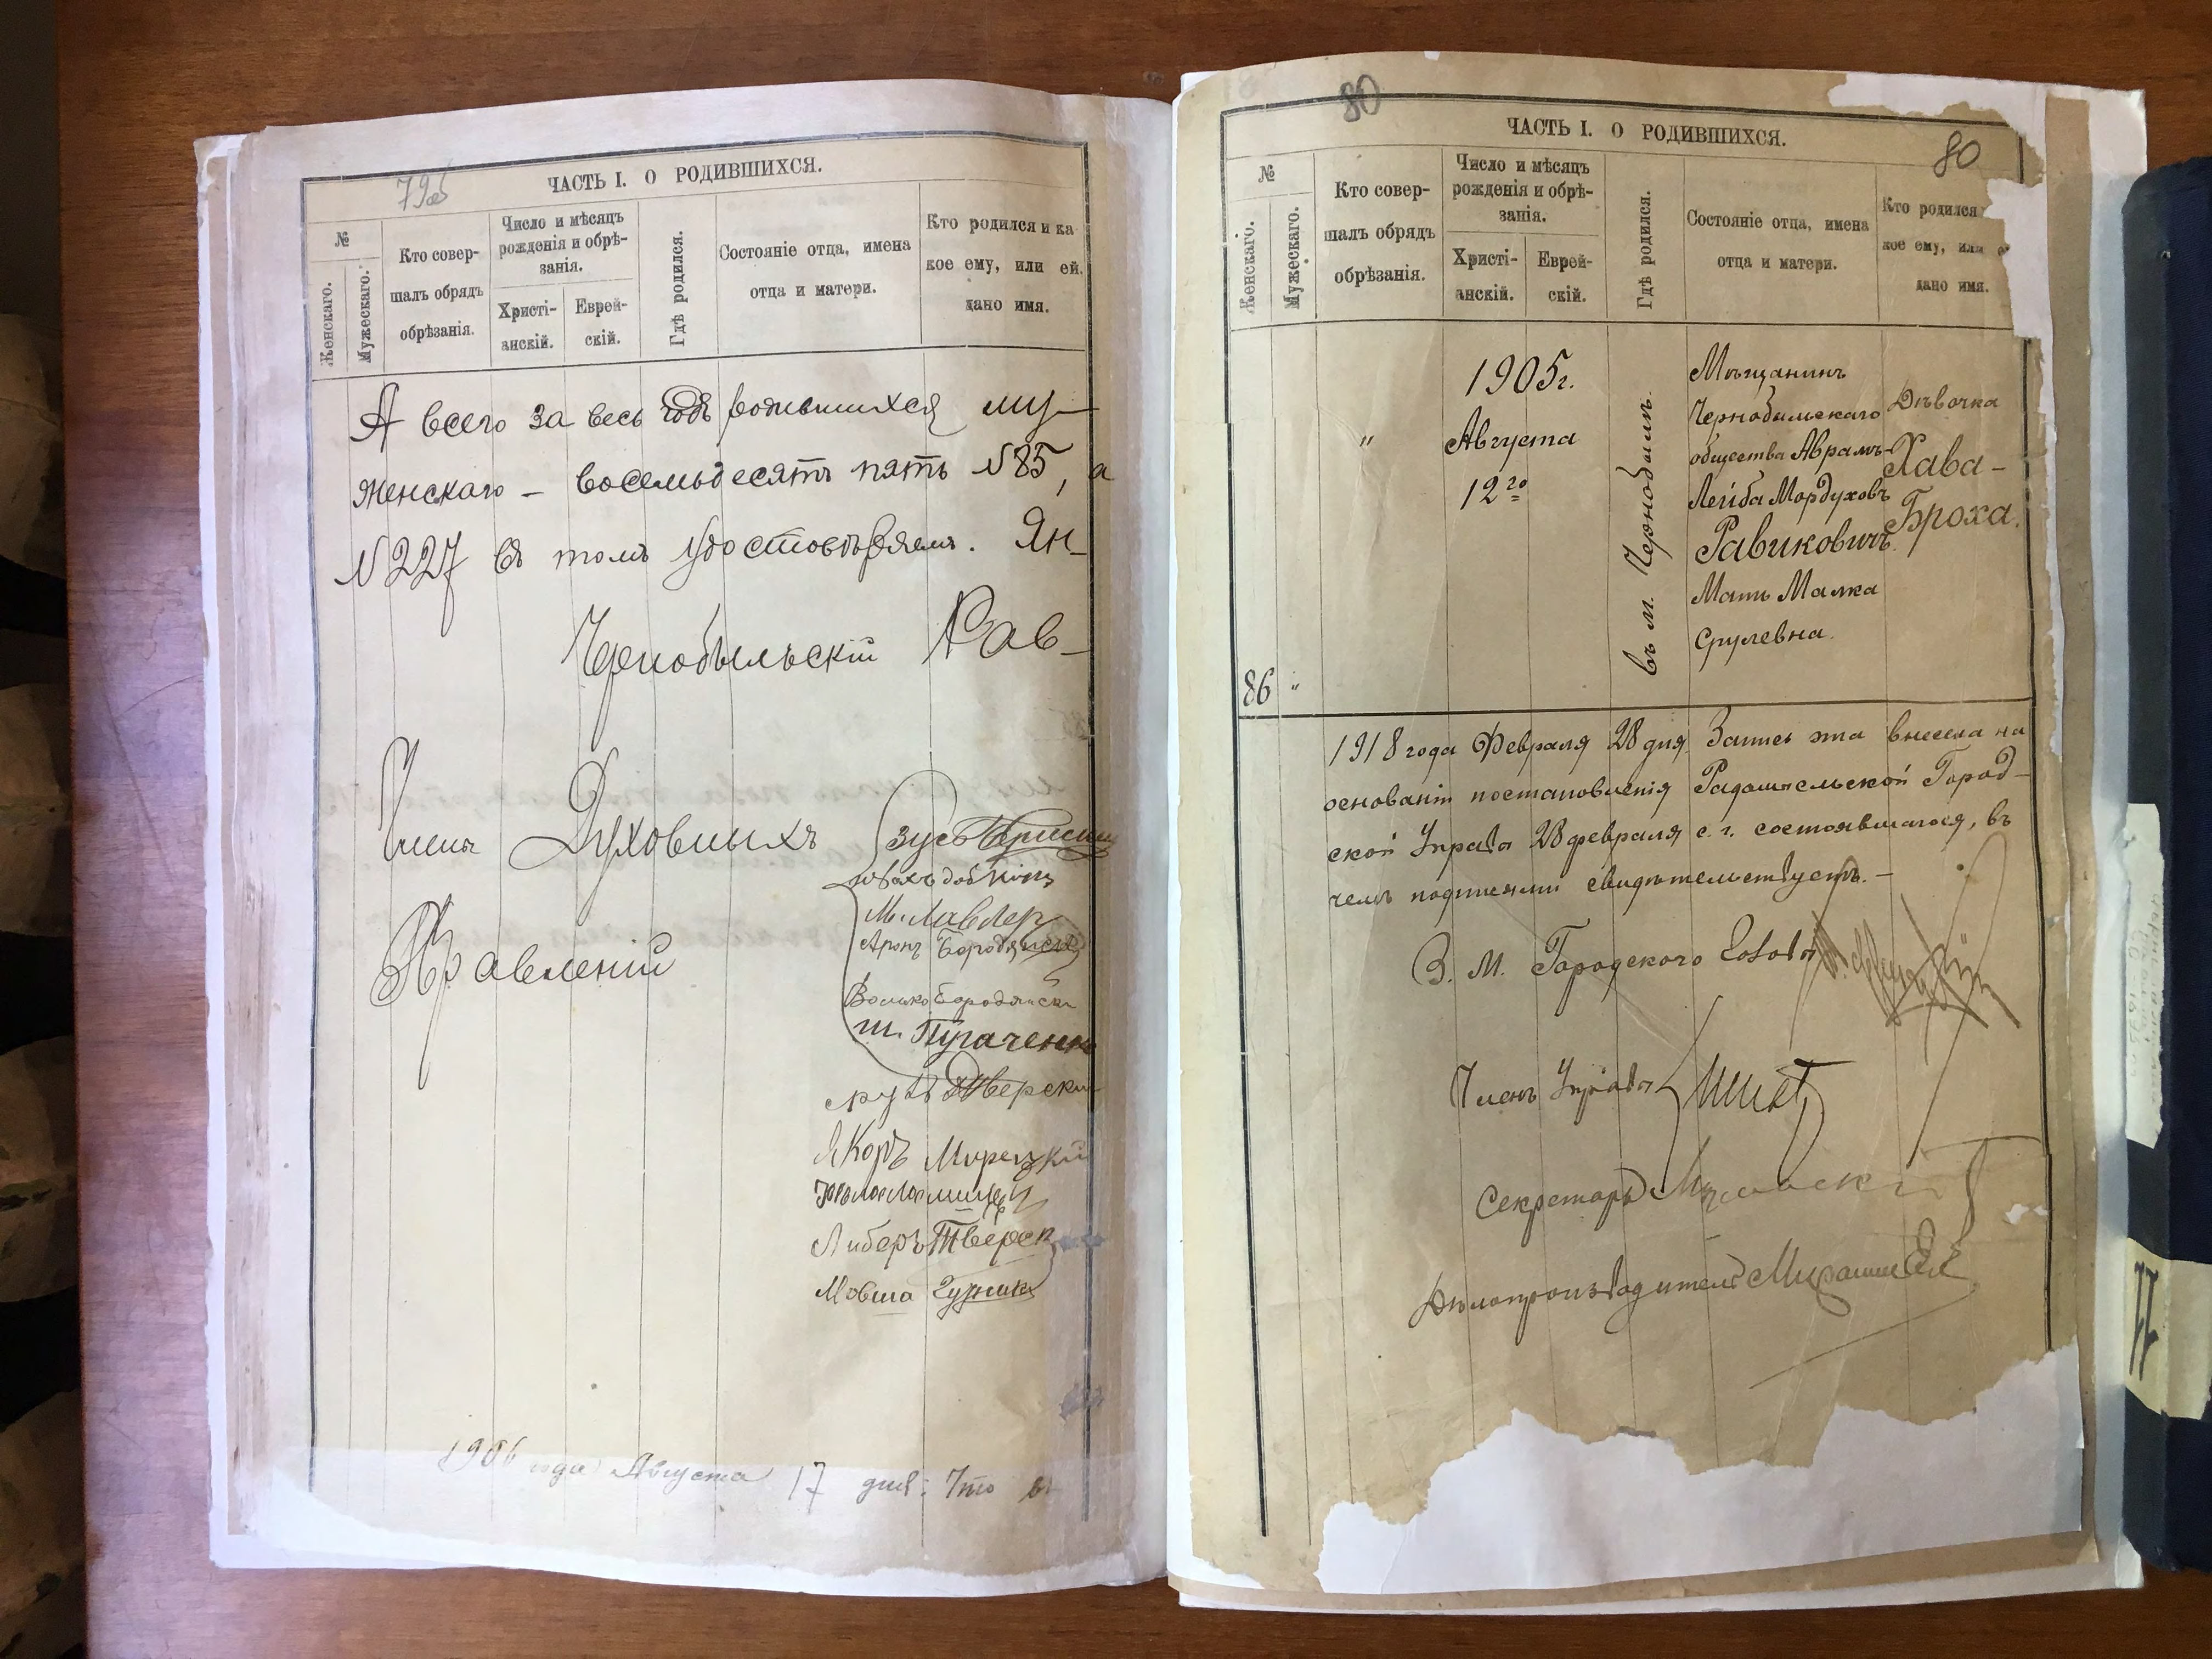 79об
ЧАСТЬ I. О РОДИВШИХСЯ.
№
Женскаго.
Мужескаго.
Кто совер-
шалъ обрядъ
обрѣзанія.
Число и мѣсяцъ
рожденія и обрѣ-
занія.
Христі-
анскій.
Еврей-
скій.
Гдѣ родился.
Состояніе отца, имена
отца и матери.
Кто родился и ка
кое ему, или ей.
дано имя.
А всего за весь годъ родившихся му-
женскаго – восемьдесятъ пять №85, а
№227 въ томъ удостовѣряемъ. Ян-
Чернобыльскій Рав-
Члены Духовныхъ
Правленій
Зусь
М. Лавлер
Аронъ Бородянск
Волько Бородянск
Ш. Пугаченк
Тверски
Якоръ Мирецкій
Либеръ Тверск
Мовша Гурник
1906 года Августа 17 дня: Что въ
80
80
ЧАСТЬ I. О РОДИВШИХСЯ.
№
Женскаго.
Мужескаго.
Кто совер-
шалъ обрядъ
обрѣзанія.
Число и мѣсяцъ
рожденія и обрѣ-
занія.
Христі-
анскій.
Еврей-
скій.
Гдѣ родился.
Состояніе отца, имена
отца и матери.
Кто родился
кое ему, или е
дано имя.
86 "
"
1905г.
Августа
12го
въ м. Чернобылъ.
Мѣщанинъ
Чернобыльскаго
общества Аврамъ-
Лейба Мордуховъ
Равиковичъ.
Мать Малка
Срулевна.
Дѣвочка
Хава-
Броха.
1918 года Февраля 28 дня. Запись эта внесена на
основаніи постановленія Радомысльской Город-
ской Управы 28 февраля с. г. состоявшагося, въ
чемъ подписями свидѣтельствуетъ. –
З. М. Городского Головы
Членъ Управы
Секретарь
Дѣлопроизводитель
77